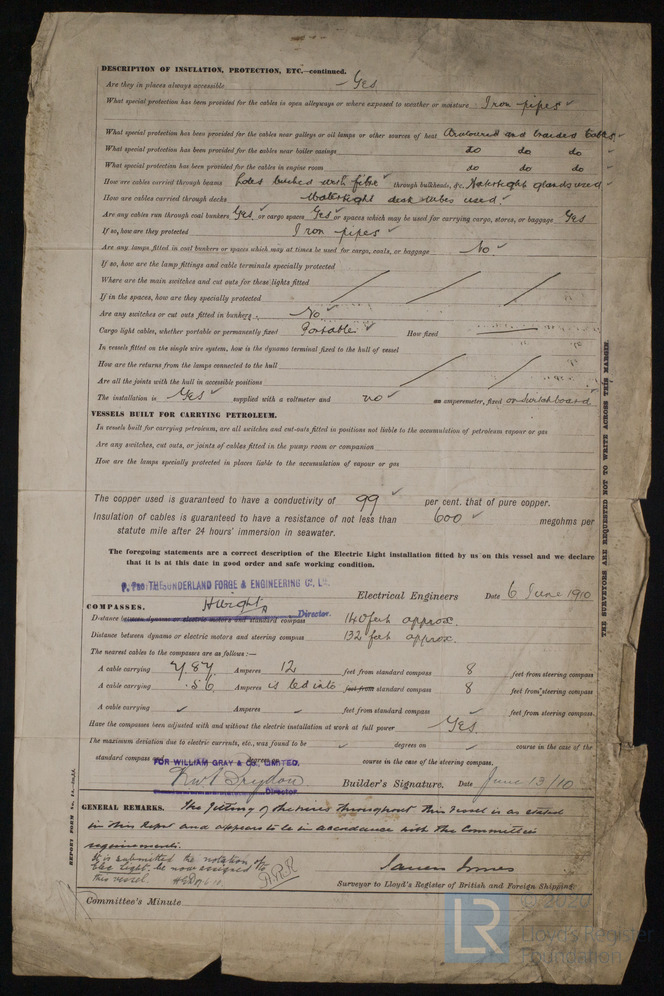 DESCRIPTION OF INSULATION, PROTECTION, ETC.—continued.
Are they in places always accessible - Yes
What special protection has been provided for the cables in open alleyways or where exposed to weather or moisture Iron pipes ✓
What special protection has been provided for the cables near galleys or oil lamps or other sources of heat Armoured and braided Cables ✓
What special protection has been provided for the cables near boiler casings do do do ✓
What special protection has been provided for the cables in engine room do do do ✓
How are cables carried through beams holes bushed with fibre ✓ through bulkheads, &c. Watertight glands used ✓
How are cables carried through decks Watertight deck tubes used. ✓
Are any cables run through coal bunkers Yes ✓ or cargo spaces Yes ✓ or spaces which may be used for carrying cargo, stores, or baggage Yes
If so, how are they protected Iron pipes ✓
Are any lamps fitted in coal bunkers or spaces which may at times be used for cargo, coals, or baggage No. ✓
If so, how are the lamp fittings and cable terminals specially protected
Where are the main switches and cut outs for these lights fitted
If in the spaces, how are they specially protected
Are any switches or cut outs fitted in bunkers No ✓
Cargo light cables, whether portable or permanently fixed Portable ✓ How fixed
In vessels fitted on the single wire system, how is the dynamo terminal fixed to the hull of vessel
How are the returns from the lamps connected to the hull
Are all the joints with the hull in accessible positions
The installation is Yes ✓ supplied with a voltmeter and no ✓ an amperemeter, fixed on switchboard.
VESSELS BUILT FOR CARRYING PETROLEUM.
In vessels built for carrying petroleum, are all switches and cut-outs fitted in positions not liable to the accumulation of petroleum vapour or gas
Are any switches, cut outs, or joints of cables fitted in the pump room or companion
How are the lamps specially protected in places liable to the accumulation of vapour or gas
The copper used is guaranteed to have a conductivity of 99 ✓ per cent. that of pure copper.
Insulation of cables is guaranteed to have a resistance of not less than 600 ✓ megohms per
statute mile after 24 hours' immersion in seawater.
The foregoing statements are a correct description of the Electric Light installation fitted by us on this vessel and we declare
that it is at this date in good order and safe working condition.
P. Pro. THE SUNDERLAND FORGE & ENGINEERING Co. Ld.
Electrical Engineers Date 6 June 1910
Director.
COMPASSES.
Distance between dynamo or electric motors and standard compass 140 feet approx.
Distance between dynamo or electric motors and steering compass 132 feet approx.
The nearest cables to the compasses are as follows:—
A cable carrying 4.84 Amperes 12 feet from standard compass 8 feet from steering compass
A cable carrying .56 Amperes is led into feet from standard compass 8 feet from steering compass
A cable carrying ✓ Amperes ✓ feet from standard compass ✓ feet from steering compass
Have the compasses been adjusted with and without the electric installation at work at full power Yes.
The maximum deviation due to electric currents, etc., was found to be ✓ degrees on ✓ course in the case of the
standard compass course in the case of the steering compass.
FOR WILLIAM GRAY & CO. LIMITED.
Builder's Signature. Date June 13/10
Director
GENERAL REMARKS. The fitting of the wires throughout this vessel is as stated
in this Report and appears to be in accordance with the Committee's
requirements.
It is submitted the notation of
Elec Light. be now assigned to
this vessel.
James Innes
Surveyor to Lloyd's Register of British and Foreign Shipping.
Committee's Minute
THE SURVEYORS ARE REQUESTED NOT TO WRITE ACROSS THIS MARGIN.
LR
© 2020
Lloyd's Register
Foundation